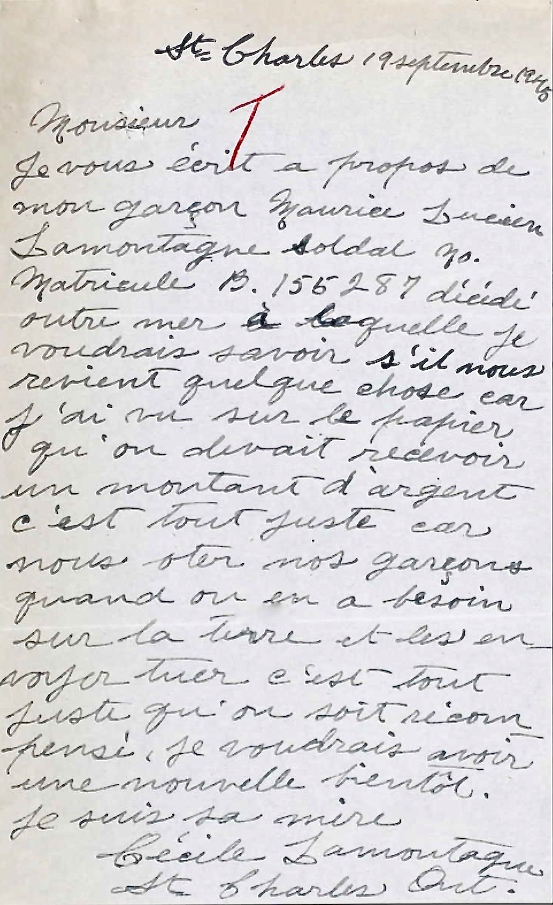 St= Charles 19 septembre 1945
T
Monsieur
Je vous écrit a propos de
mon garçon Maurice Lucien
Lamontagne Soldal no.
Matricule B. 155287 décédé
outre mer à laquelle je
voudrais savoir s'il nous
revient quelque chose car
j'ai vu sur le papier
qu'on devait recevoir
un montant d'argent
c'est tout juste car
nous oter nos garçons
quand on en a besoin
sur la terre et les en-
voyer tuer c'est tout
juste qu'on soit récom
pensé, je voudrais avoir
une nouvelle bientôt.
Je suis sa mère
Cécile Lamontagne
St= Charles Ont.